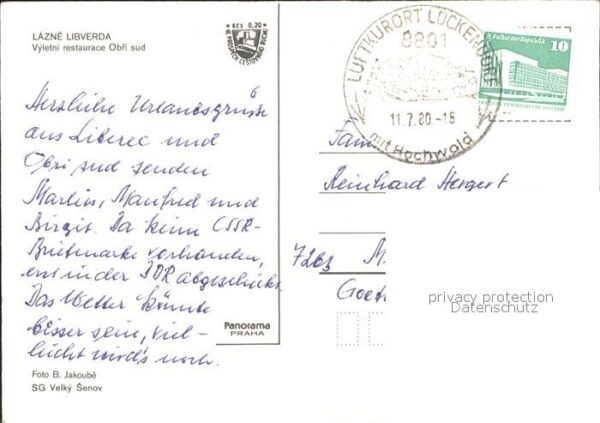 LÁZNĚ LIBVERDA
Výletní restaurace Obří sud
Kčs 0,20
VE PROSPĚCH CESTOVNÍHO RUCHU
LUFTKURORT LÜCKENDORF
8801
11.7.80-15
mit Hochwald
Palast der Republik
10
Herzliche Urlaubsgrüße
aus Liberec und
Obří sud senden
Marlis, Manfred und
Birgit. Da keine CSSR-
Briefmarke vorhanden,
erst in der DDR abgeschickt.
Das Wetter könnte
besser sein, viel-
leicht wird's noch.
Fam
Reinhard Hergert
7263 M.
Goeth
privacy protection
Datenschutz
Panorama
PRAHA
Foto B. Jakoubě
SG Velký Šenov